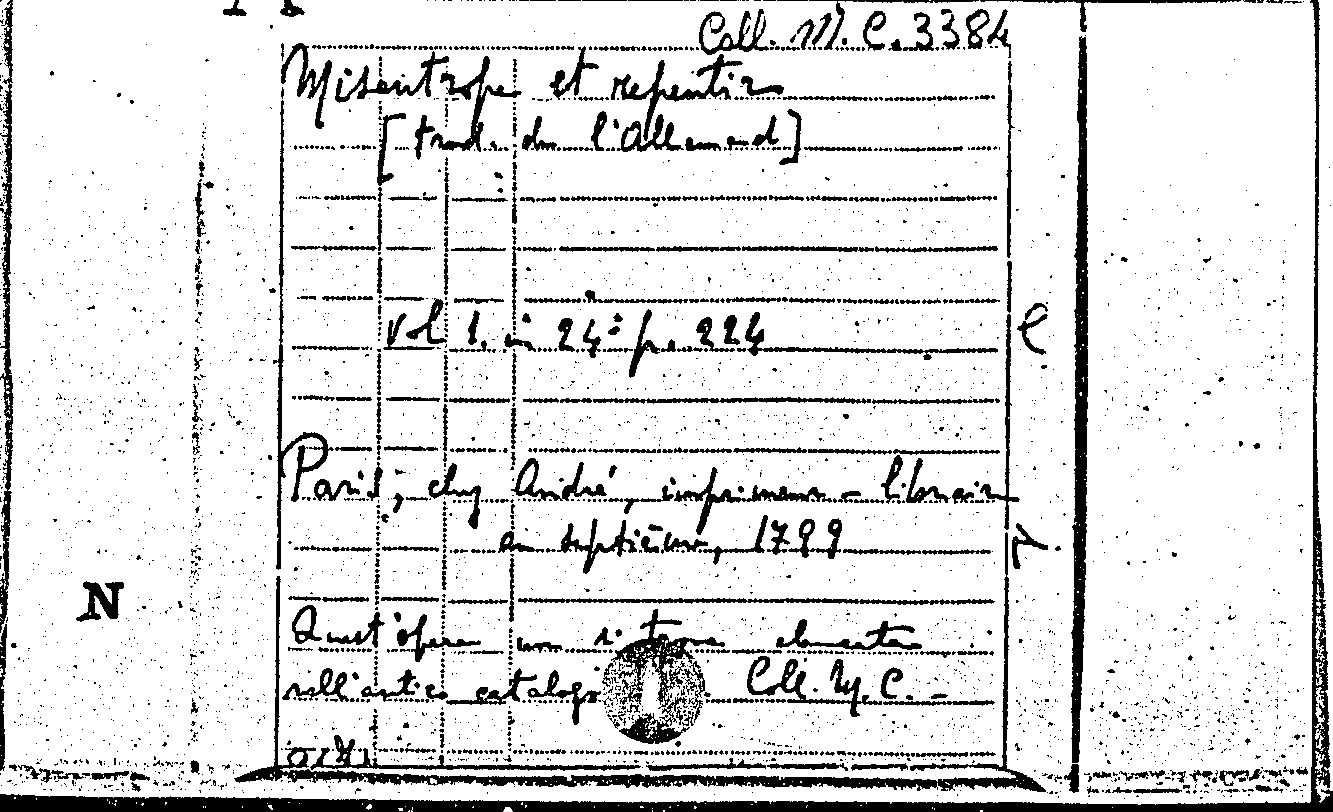 Coll. M. C. 3384
Misantrope et repentir
[trad. du l'Allemand]
vol 1. in 24° p. 224
Paris, chez André, imprimeur-libraire
an septième, 1799
N
Quest'opera non si trova elencata
nell'antico catalogo Coll. M. C. -